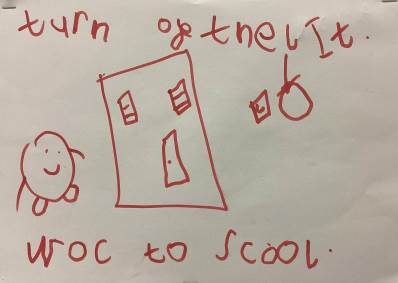 turn of the lIt.
woc to Scool.